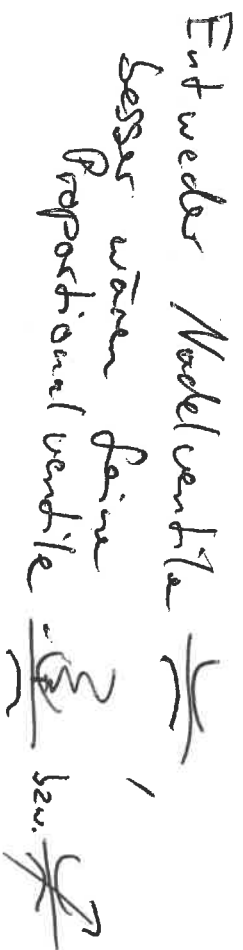 Entweder Nadelventile ,
besser wären feine
Proportionalventile bzw.